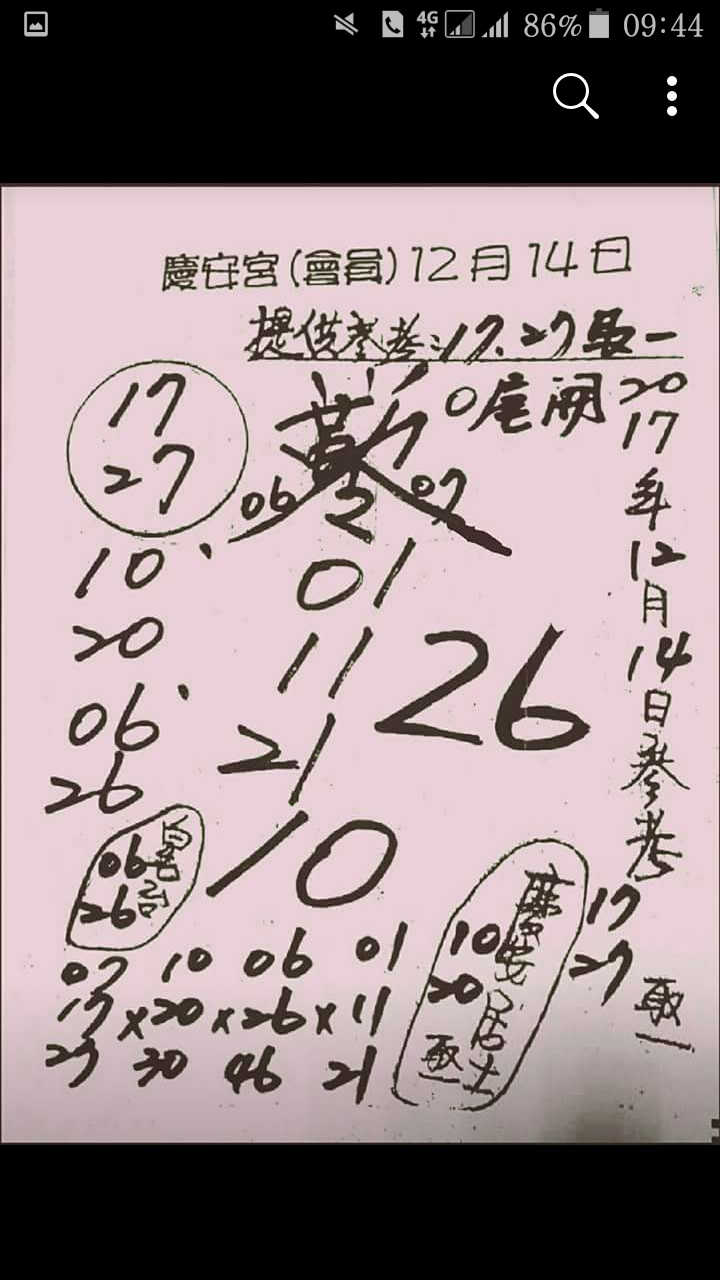 4G 86% 09:44
慶安宮(會員)12月14日
提供參考:17.27取一
0尾開
2017年12月14日參考
17
27
06 07
10
20
06
26
01
11
21
26
10
06
26
慶安居士
10
20
取一
17
27
取一
07 10 06 01
17×20×26×11
27 30 46 21